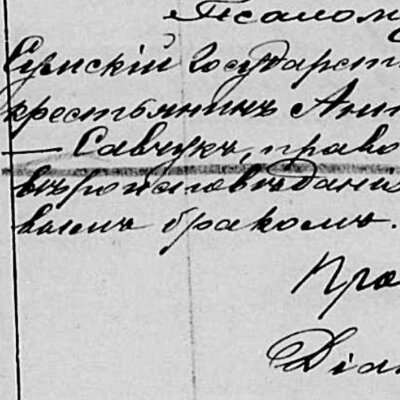 Псалом
Сумскій Государст
крестьянинъ Ант
— Савчукъ, право
вѣроисповѣдані
вымъ бракомъ.
Про
Діа